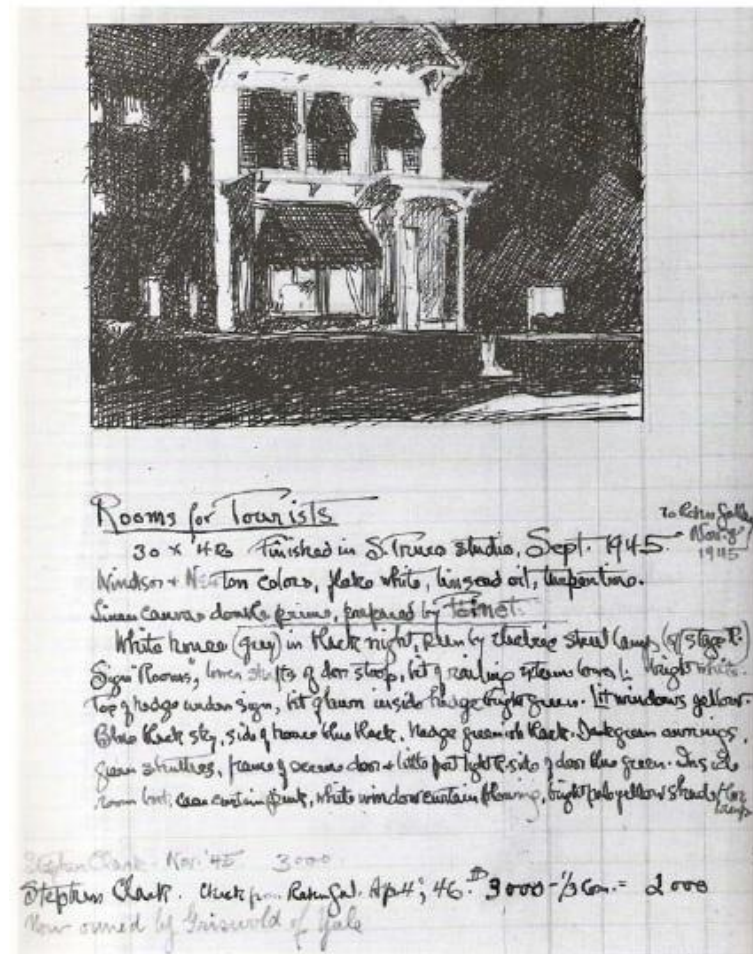 Rooms for Tourists
To Rehn Gallery
Nov. 8
1945
30 x 42 Finished in S. Truro Studio, Sept. 1945.
Windsor + Newton colors, flake white, linseed oil, turpentine.
Linen canvas double prime, prepared by
White house (grey) in black night, seen by electric street lamp (off stage R.)
Sign "Rooms", lower of door stoop, bit of railing extreme lower L. bright white.
Top of hedge under sign, bit of lawn inside hedge bright green. Lit windows yellow.
Blue black sky, side of house blue black. Hedge greenish black. Dark green awnings,
green shutters, frame of screen door + little post light R. side of door blue green. Inside
room white window curtain blowing, bright pale yellow shade
lamp
Stephen Clark. Nov. '45 3000
Stephen Clark. Check from Rehn Gal. Ap. 4, '46. 3000 - 1/3 Com. = 2000
Now owned by Griswold of Yale